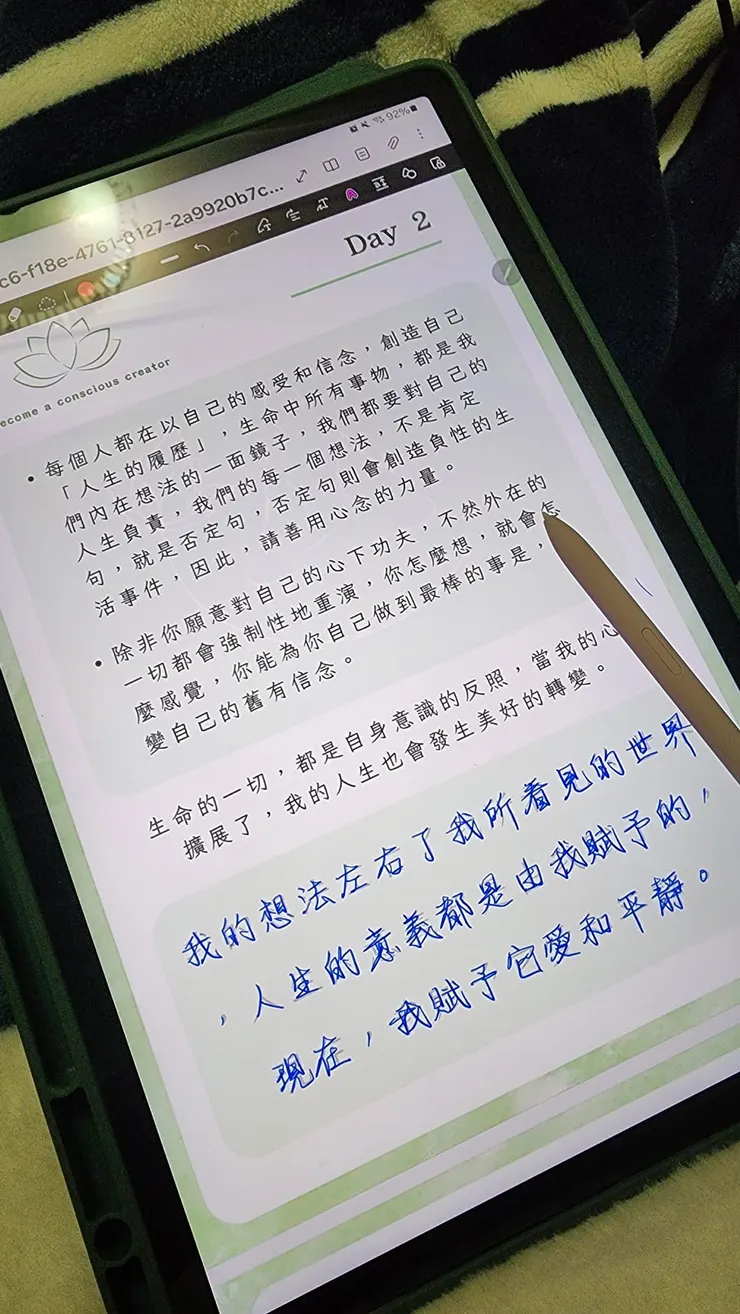 92%
c6-f18e-4761-8127-2a9920b7c...
Day 2
ecome a conscious creator
• 每個人都在以自己的感受和信念，創造自己
「人生的履歷」，生命中所有事物，都是我
們內在想法的一面鏡子，我們都要對自己的
人生負責，我們的每一個想法，不是肯定
句，就是否定句，否定句則會創造負性的生
活事件，因此，請善用心念的力量。
• 除非你願意對自己的心下功夫，不然外在的
一切都會強制性地重演，你怎麼想，就會怎
麼感覺，你能為你自己做到最棒的事是，
變自己的舊有信念。
生命的一切，都是自身意識的反照，當我的心
擴展了，我的人生也會發生美好的轉變。
我的想法左右了我所看見的世界
，人生的意義都是由我賦予的，
現在，我賦予它愛和平靜。